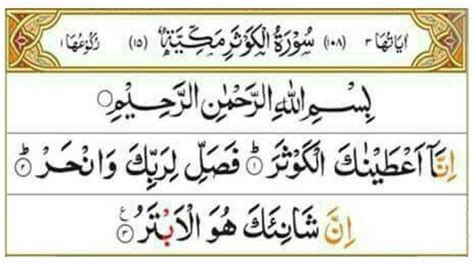 اٰيَاتُهَا ٣ (١٠٨) سُوْرَةُ الْكَوْثَرِ مَكِّيَّةٌ (١٥) رُكُوْعُهَا ١
بِسْمِ اللهِ الرَّحْمٰنِ الرَّحِيْمِ
اِنَّاۤ اَعْطَيْنٰكَ الْكَوْثَرَ ؕ﴿١﴾ فَصَلِّ لِرَبِّكَ وَانْحَرْ ؕ﴿٢﴾
اِنَّ شَانِئَكَ هُوَ الْاَبْتَرُ ﴿٣﴾ ع